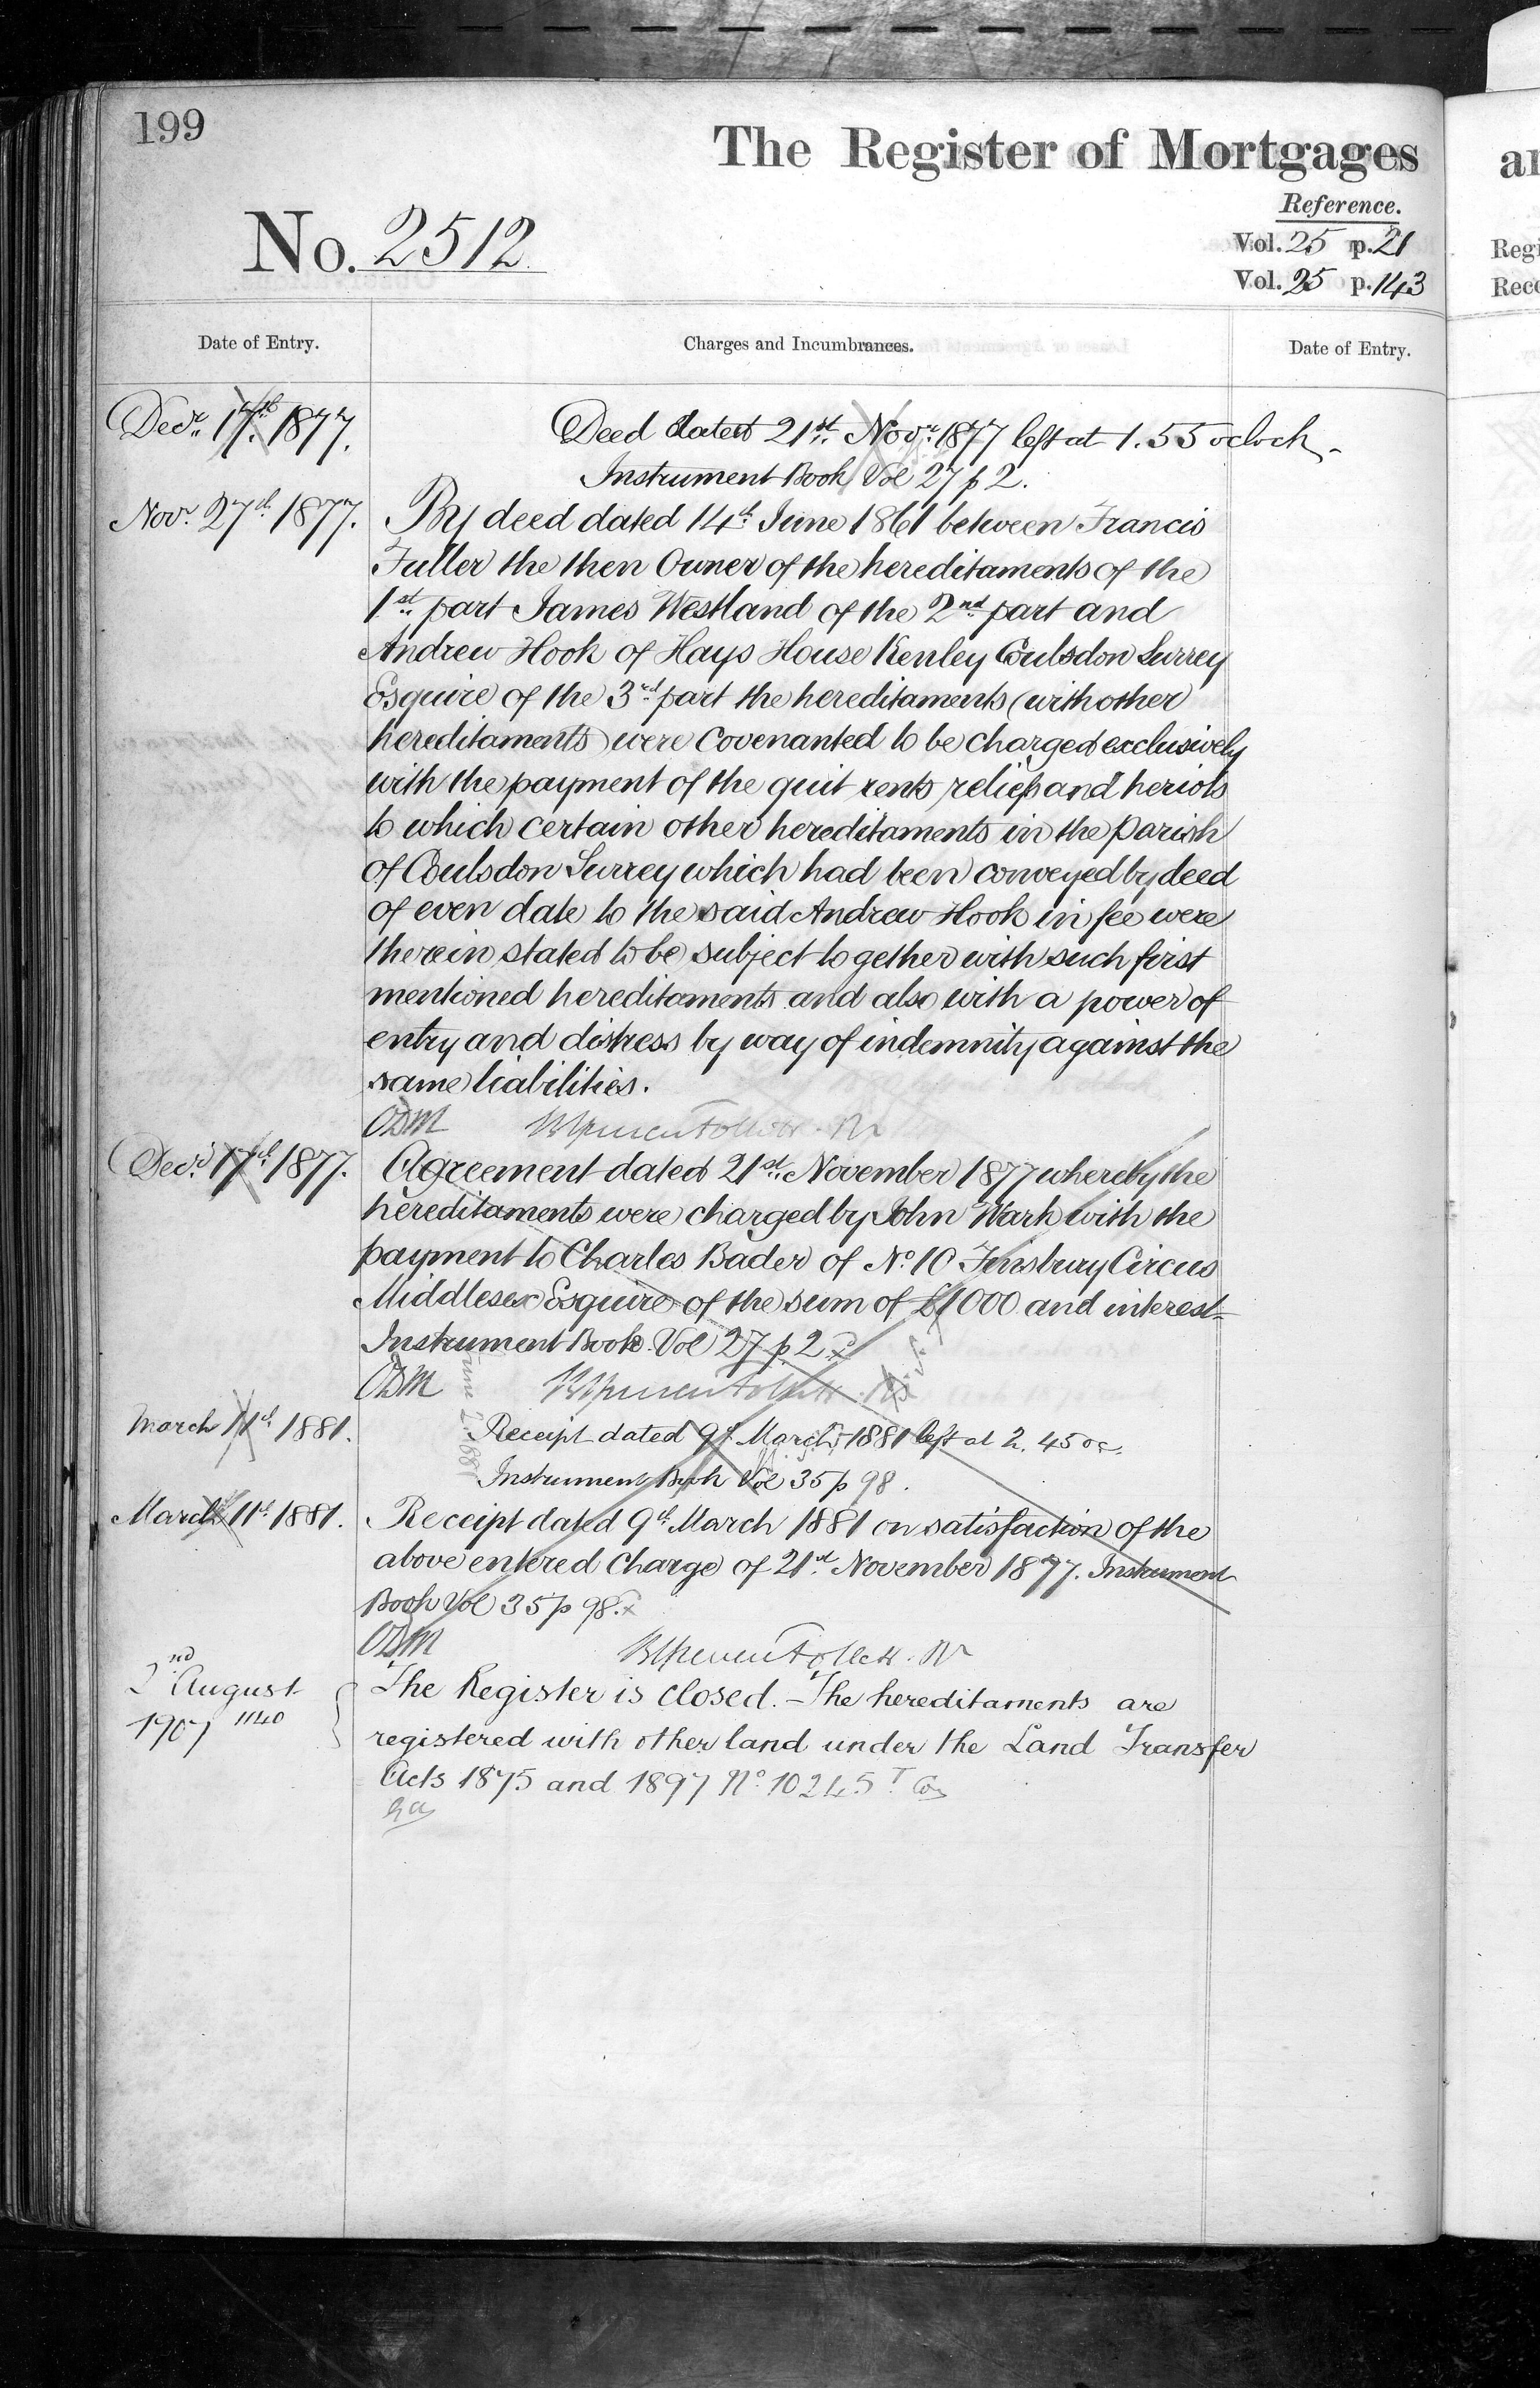 199
The Register of Mortgages
Reference.
No. 2512
Vol. 25 p. 21
Vol. 25 p. 143
Date of Entry.
Charges and Incumbrances.
Date of Entry.
Decr. 17th. 1877.
Deed dated 21st. Novr. 1877 left at 1.55 oclock.
Instrument Book Vol 27 p 2.
Novr. 27th 1877.
By deed dated 14th June 1861 between Francis
Fuller the then Owner of the hereditaments of the
1st. part James Westland of the 2nd. part and
Andrew Hook of Hays House Kenley Coulsdon Surrey
Esquire of the 3rd part the hereditaments (with other
hereditaments) were covenanted to be charged exclusively
with the payment of the quit rents reliefs and heriots
to which certain other hereditaments in the parish
of Coulsdon Surrey which had been conveyed by deed
of even date to the said Andrew Hook in fee were
therein stated to be subject together with such first
mentioned hereditaments and also with a power of
entry and distress by way of indemnity against the
same liabilities.
ODM
Decr. 17th. 1877.
Agreement dated 21st. November 1877 whereby the
hereditaments were charged by John Wark with the
payment to Charles Bader of No. 10 Finsbury Circus
Middlesex Esquire of the sum of £1000 and interest
Instrument Book Vol 27 p 2
ODM
March 11th 1881.
Receipt dated 9th March 1881 left at 2.45 oc.
Instrument Book Vol 35 p 98.
March 11th 1881.
Receipt dated 9th March 1881 on satisfaction of the
above entered charge of 21st November 1877. Instrument
Book Vol 35 p 98.
ODM
2nd August
1907 1140
The Register is closed. – The hereditaments are
registered with other land under the Land Transfer
Acts 1875 and 1897 No. 10245